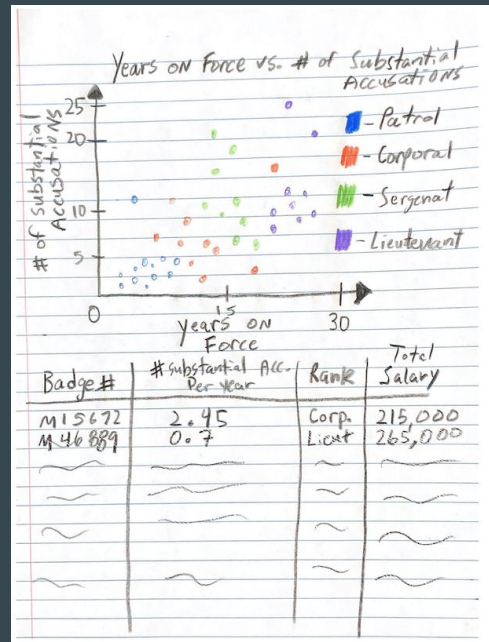 Years on Force vs. # of Substantial
Accusations
# of substantial
Accusations
25
20
10
5
0
15
30
years on
Force
- Patrol
- Corporal
- Sergenat
- Lieutenant
Badge #
# substantial Acc.
Per year
Rank
Total
Salary
M15672 2.45 Corp. 215,000
M46889 0.7 Lieut 265,000